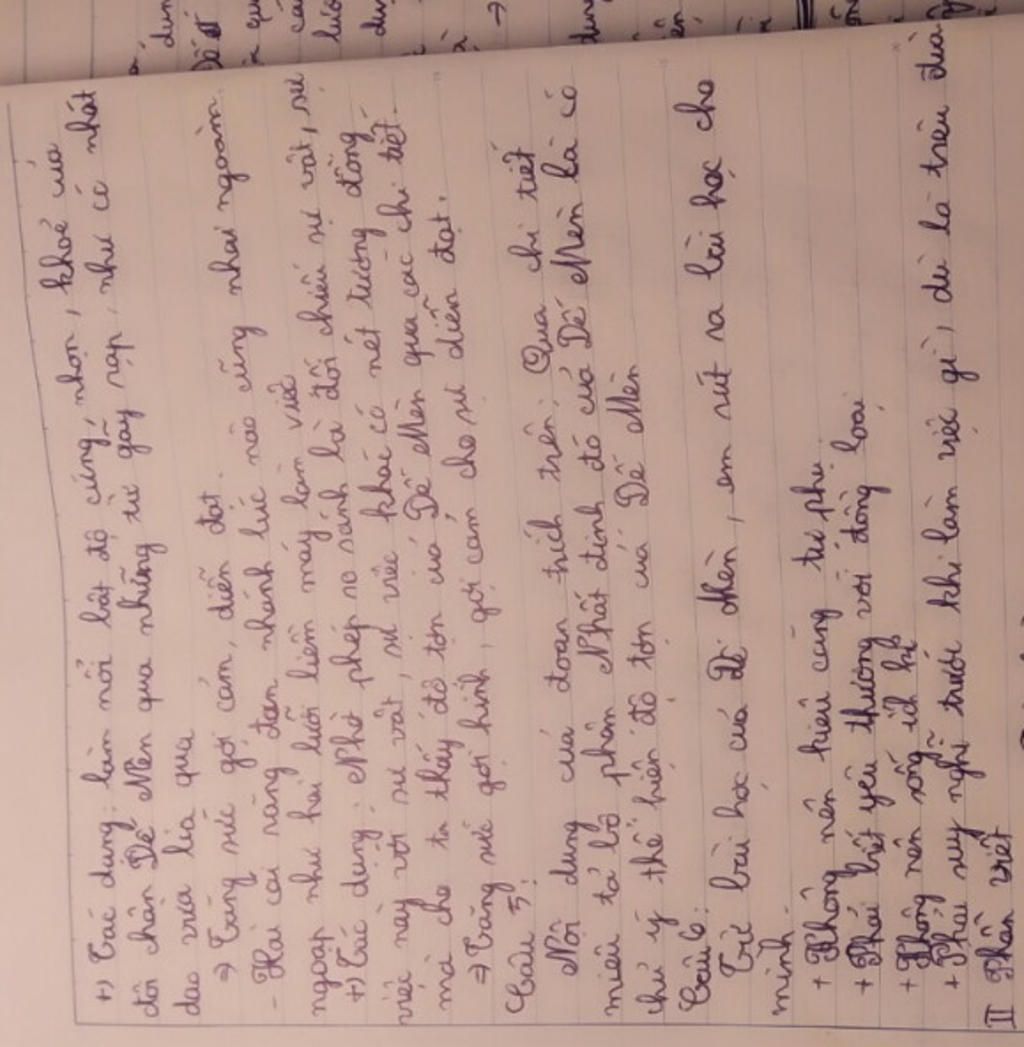 +) Tác dụng: làm nổi bật độ cứng, nhọn, khoẻ của
đôi chân Dế Mèn qua những từ gãy rạp, như có nhát
dao vừa lia qua
⇒ Tăng sức gợi cảm, diễn đạt.
- Hai cái răng đen nhánh lúc nào cũng nhai ngoàm
ngoạp như hai lưỡi liềm máy làm việc
+) Tác dụng: Nhờ phép so sánh là đối chiếu sự vật, sự
việc này với sự vật, sự việc khác có nét tương đồng
mà cho ta thấy độ tợn của Dế Mèn qua các chi tiết.
⇒ Tăng sức gợi hình, gợi cảm cho sự diễn đạt.
Câu 5:
Nội dung của đoạn trích trên: Qua chi tiết
miêu tả bộ phận Nhất định đó của Dế Mèn là có
chủ ý thể hiện độ tợn của Dế Mèn
Câu 6:
Từ bài học của Dế Mèn, em rút ra bài học cho
mình.
+ Không nên kiêu căng tự phụ.
+ Phải biết yêu thương với đồng loại
+ Không nên sống ích kỉ
+ Phải suy nghĩ trước khi làm việc gì, dù là trêu đùa
II Phần viết